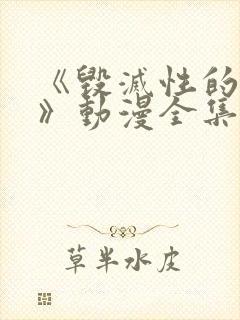 《毁滅性的
》動漫全集
草半水皮